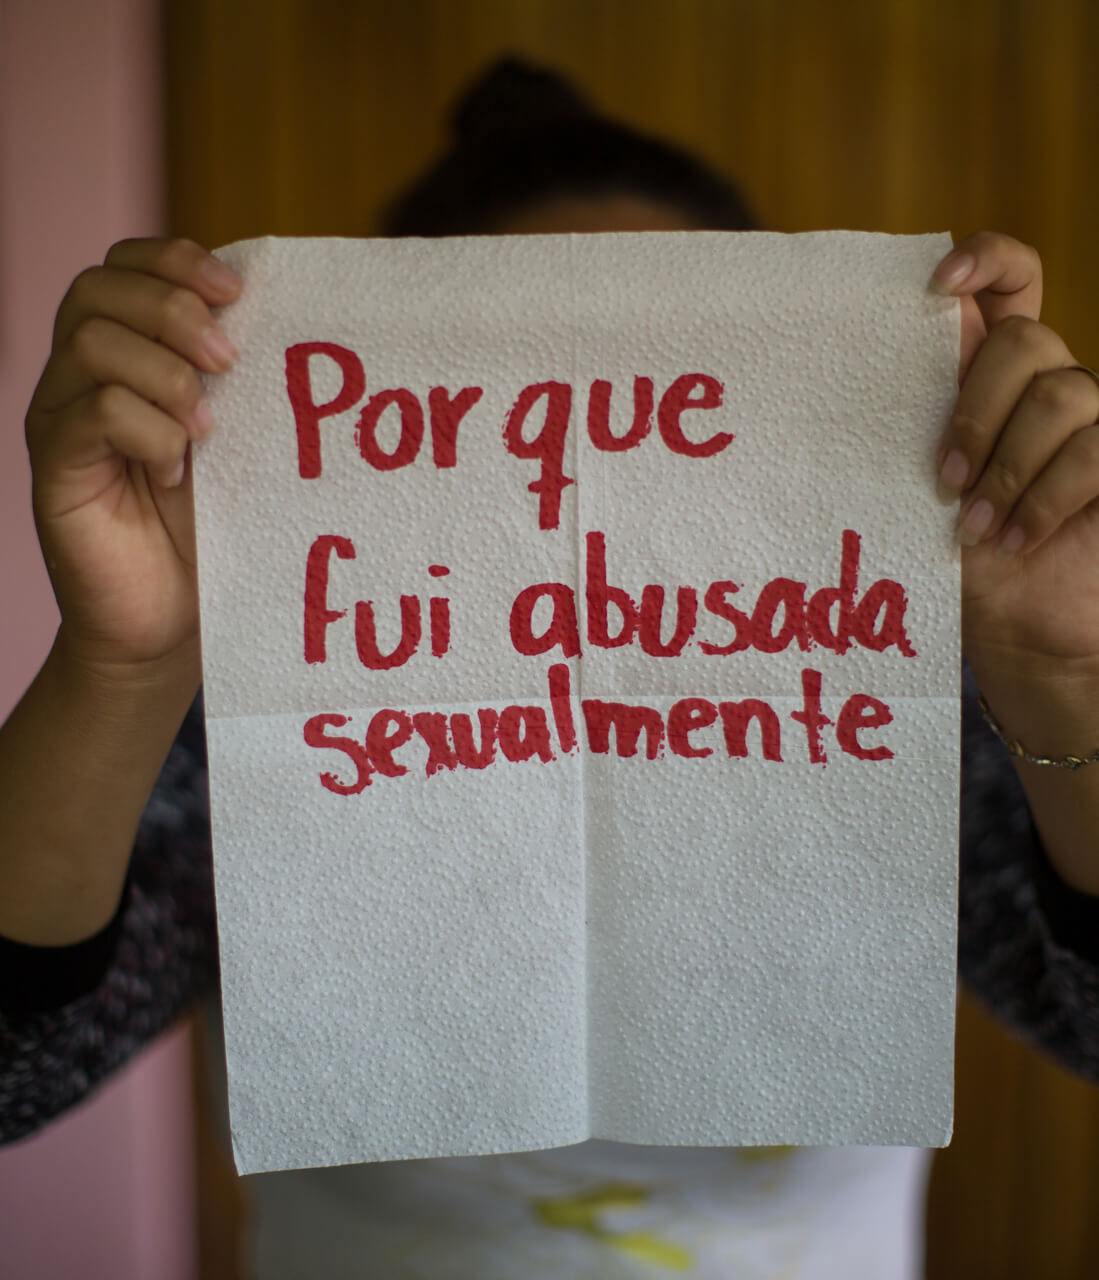 Por que
fui abusada
sexualmente